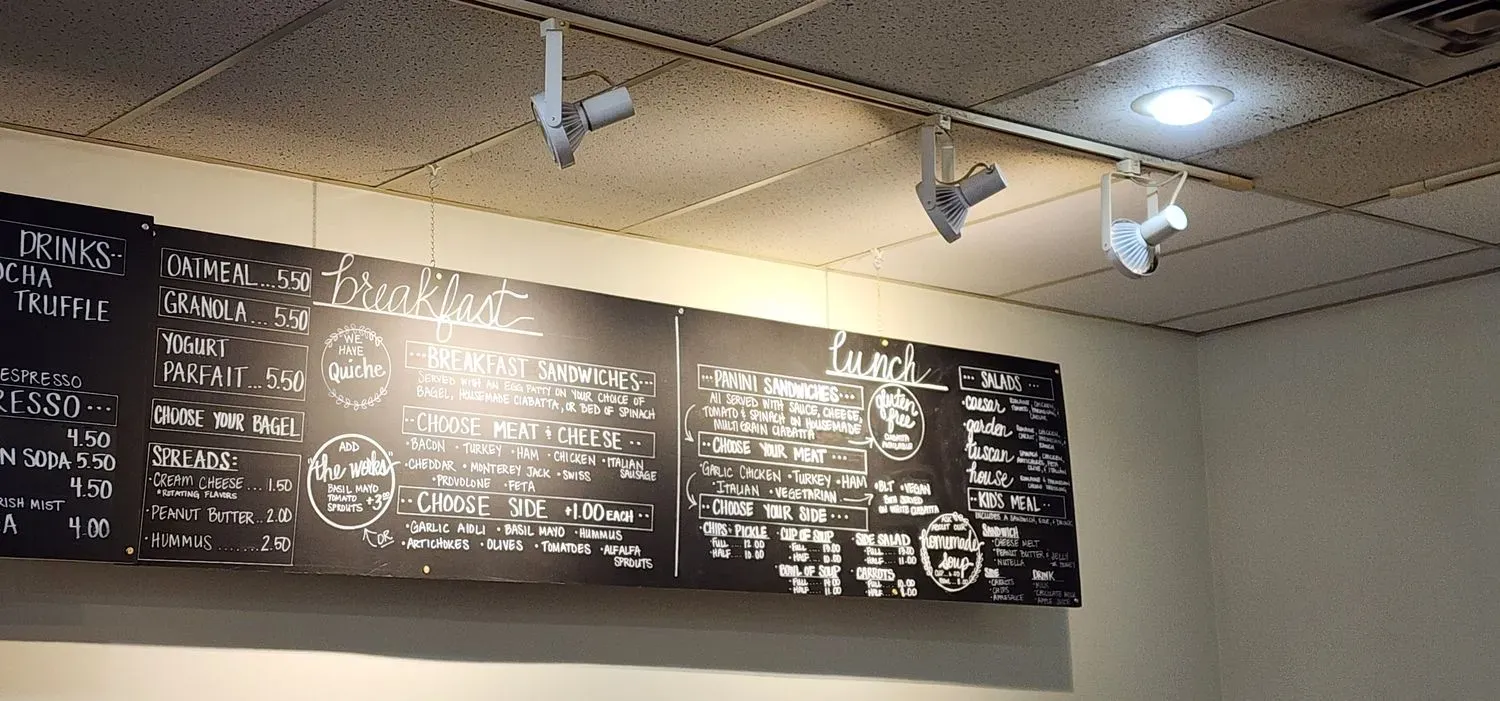 DRINKS
OCHA
TRUFFLE
ESPRESSO
RESSO
4.50
N SODA 5.50
4.50
RISH MIST
A 4.00
OATMEAL...5.50
GRANOLA...5.50
YOGURT
PARFAIT...5.50
CHOOSE YOUR BAGEL
SPREADS:
•CREAM CHEESE....1.50
*ROTATING FLAVORS
•PEANUT BUTTER..2.00
•HUMMUS.......2.50
breakfast
WE
HAVE
Quiche
ADD
the works
BASIL MAYO
TOMATO
SPROUTS +3.00
OR
BREAKFAST SANDWICHES
SERVED WITH AN EGG PATTY ON YOUR CHOICE OF
BAGEL, HOUSEMADE CIABATTA, OR BED OF SPINACH
CHOOSE MEAT & CHEESE
•BACON •TURKEY •HAM •CHICKEN •ITALIAN
SAUSAGE
•CHEDDAR •MONTEREY JACK •SWISS
•PROVOLONE •FETA
CHOOSE SIDE +1.00 EACH
•GARLIC AIOLI •BASIL MAYO •HUMMUS
•ARTICHOKES •OLIVES •TOMATOES •ALFALFA
SPROUTS
lunch
PANINI SANDWICHES
All SERVED WITH SAUCE, CHEESE,
TOMATO & SPINACH ON HOUSEMADE
MULTIGRAIN CIABATTA
gluten
free
CIABATTA
AVAILABLE
CHOOSE YOUR MEAT
•GARLIC CHICKEN •TURKEY •HAM
•ITALIAN •VEGETARIAN
•BLT •VEGAN
BOTH SERVED
ON WHITE CIABATTA
CHOOSE YOUR SIDE
CHIPS & PICKLE
FULL...12.00
HALF...10.00
CUP OF SOUP
FULL
HALF
BOWL OF SOUP
FULL
HALF
SIDE SALAD
FULL
HALF
CARROTS
FULL
HALF
ASK
ABOUT OUR
homemade
soup
SALADS
•caesar
•garden
•tuscan
•house
KID'S MEAL
INCLUDES A SANDWICH, SIDE, & DRINK
SANDWICH
•CHEESE MELT
•PEANUT BUTTER & JELLY
•NUTELLA
SIDE
•CARROTS
•CHIPS
•APPLESAUCE
DRINK
•MILK
•CHOCOLATE MILK
•APPLE JUICE